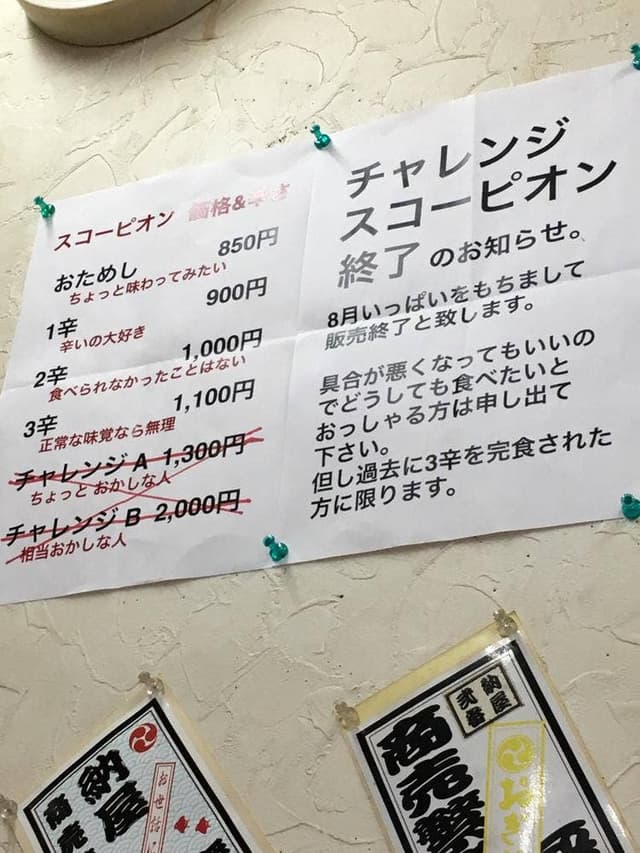 スコーピオン 価格&辛さ
おためし 850円
ちょっと味わってみたい
1辛 900円
辛いの大好き
2辛 1,000円
食べられなかったことはない
3辛 1,100円
正常な味覚なら無理
チャレンジA 1,300円
ちょっと おかしな人
チャレンジB 2,000円
相当おかしな人
チャレンジ
スコーピオン
終了 のお知らせ。
8月いっぱいをもちまして
販売終了と致します。
具合が悪くなってもいいの
でどうしても食べたいと
おっしゃる方は申し出て
下さい。
但し過去に3辛を完食された
方に限ります。
納屋
商売
お世話
納屋
弐番
商売繁